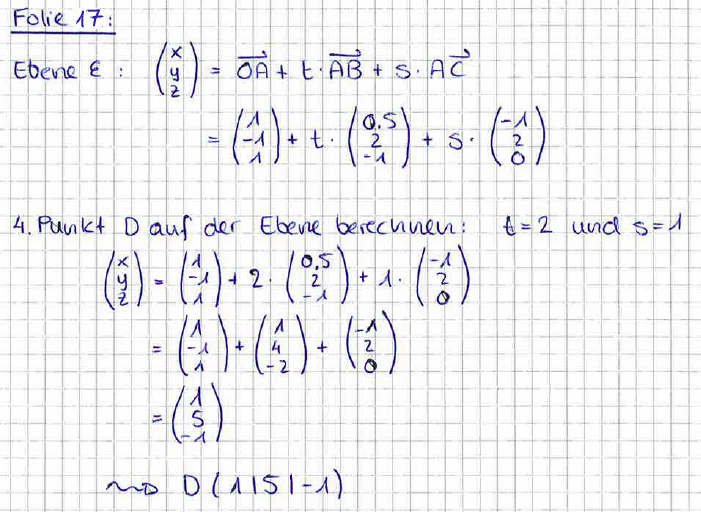 Folie 17:
Ebene E : (x y z) = OA + t · AB + s · AC
= (1 -1 1) + t · (0,5 2 -1) + s · (-1 2 0)
4. Punkt D auf der Ebene berechnen: t=2 und s=1
(x y z) = (1 -1 1) + 2 · (0,5 2 -1) + 1 · (-1 2 0)
= (1 -1 1) + (1 4 -2) + (-1 2 0)
= (1 5 -1)
⇝ D (1|5|-1)